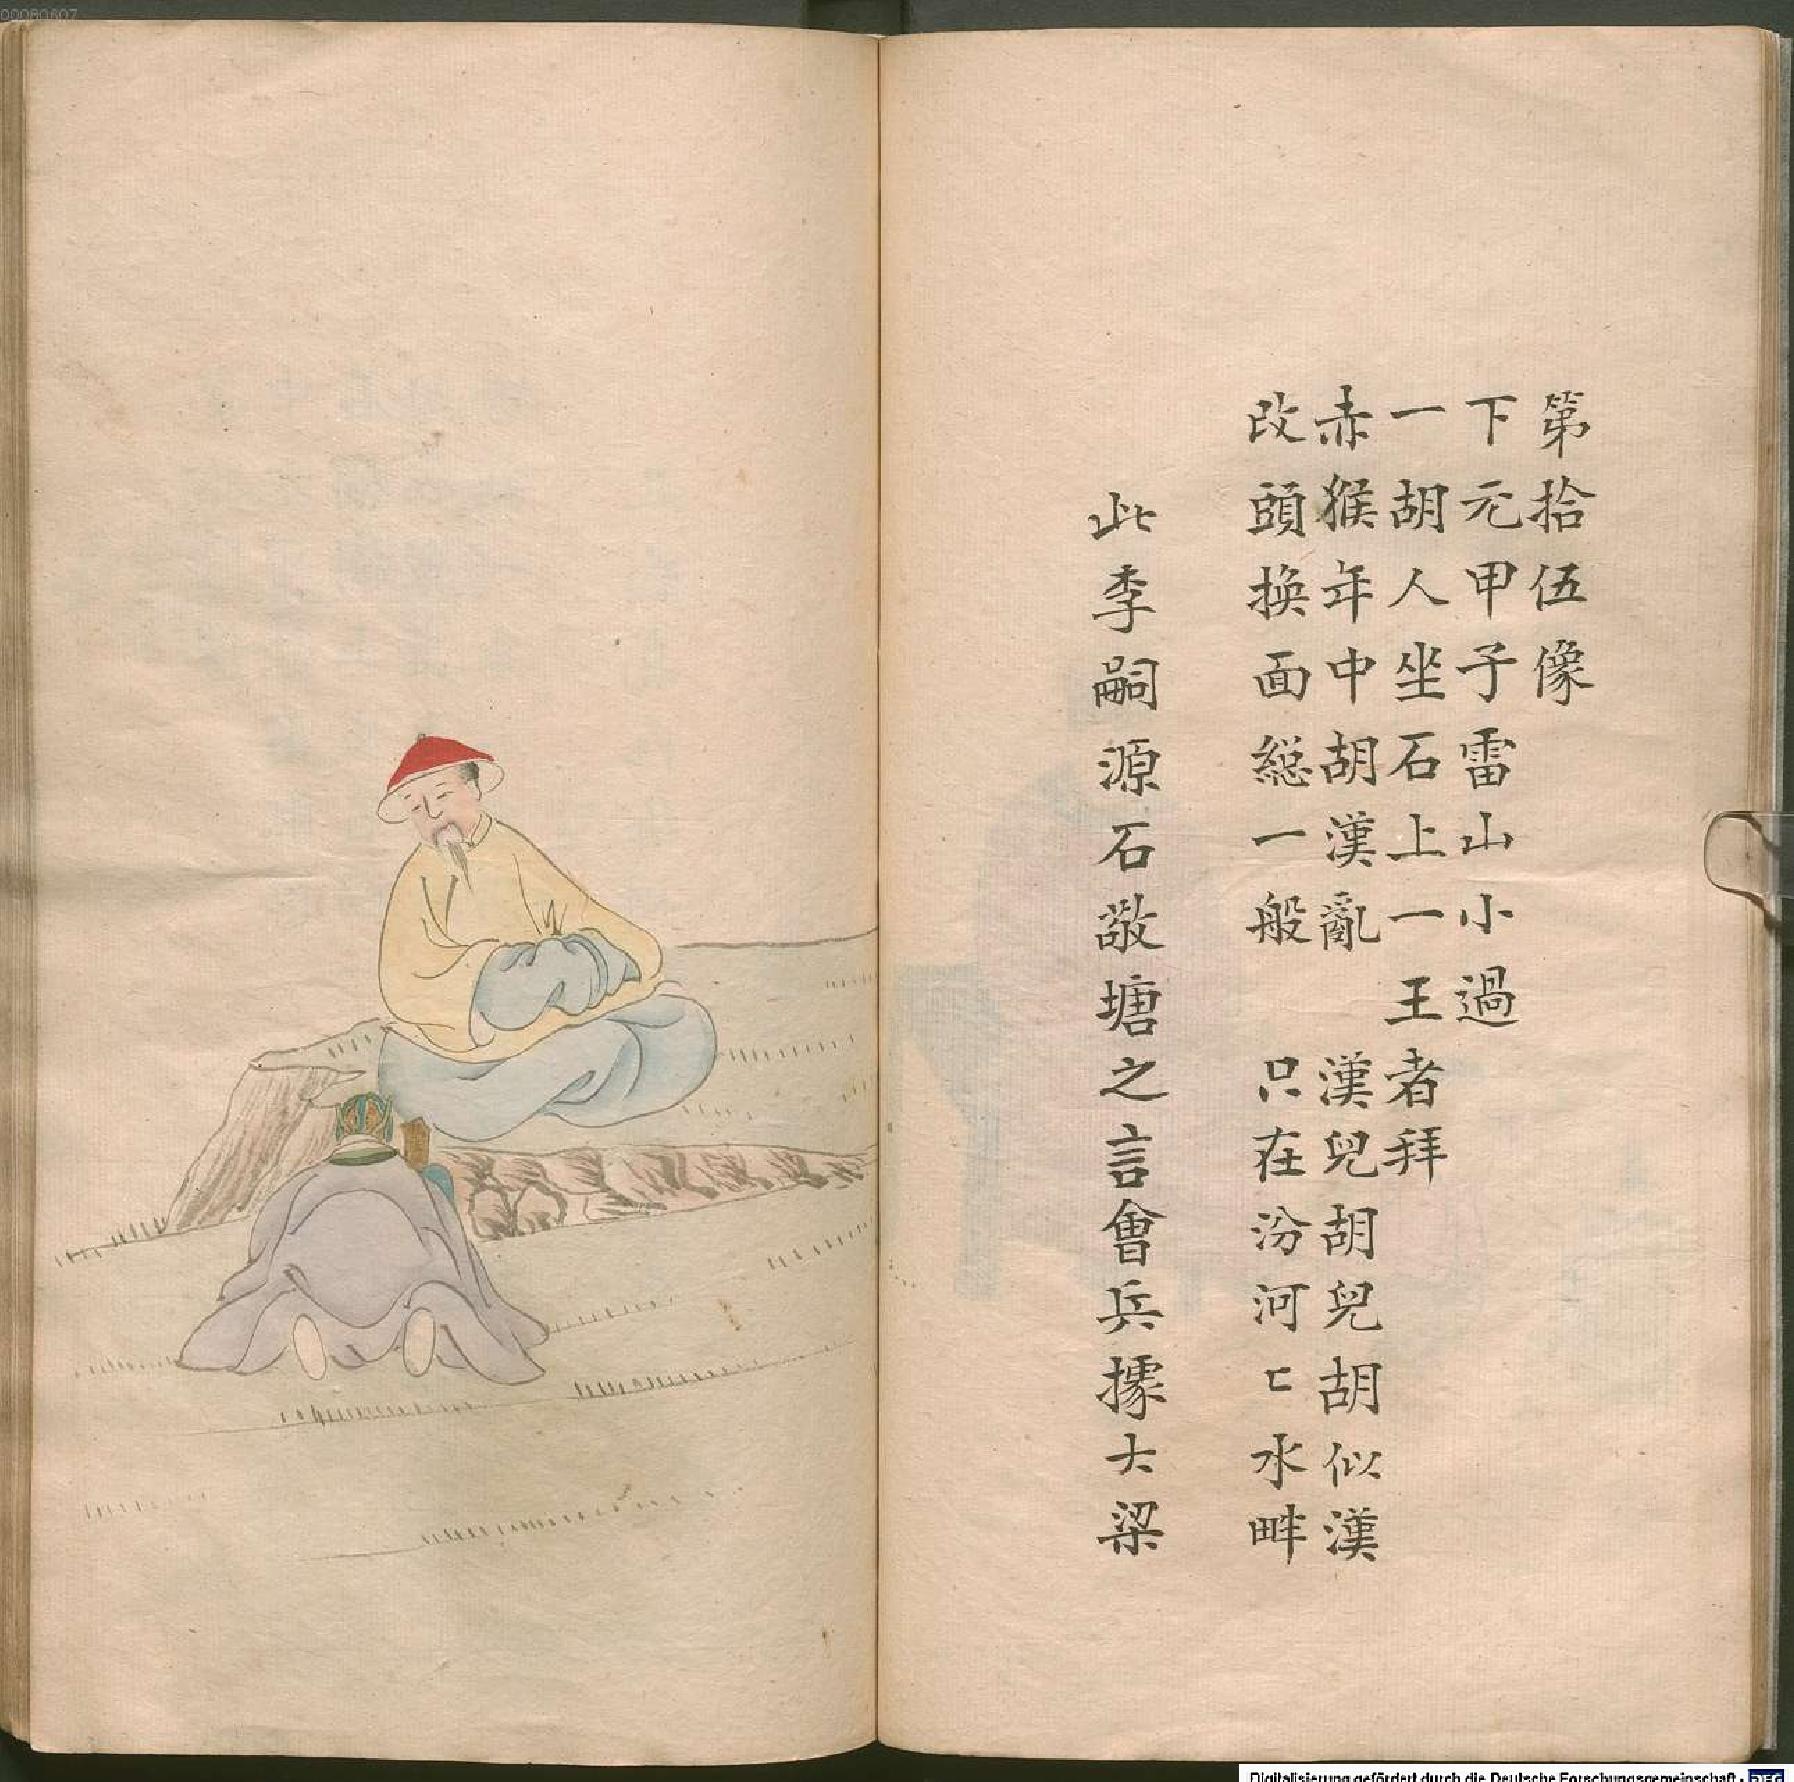 第拾伍像
下元甲子雷山小過
一胡人坐石上一王者拜
赤猴年中胡漢亂 漢兒胡兒胡似漢
改頭換面緫一般 只在汾河匸水畔
此李嗣源石敬塘之言會兵據大梁
00080607
Digitalisierung gefördert durch die Deutsche Forschungsgemeinschaft - DFG